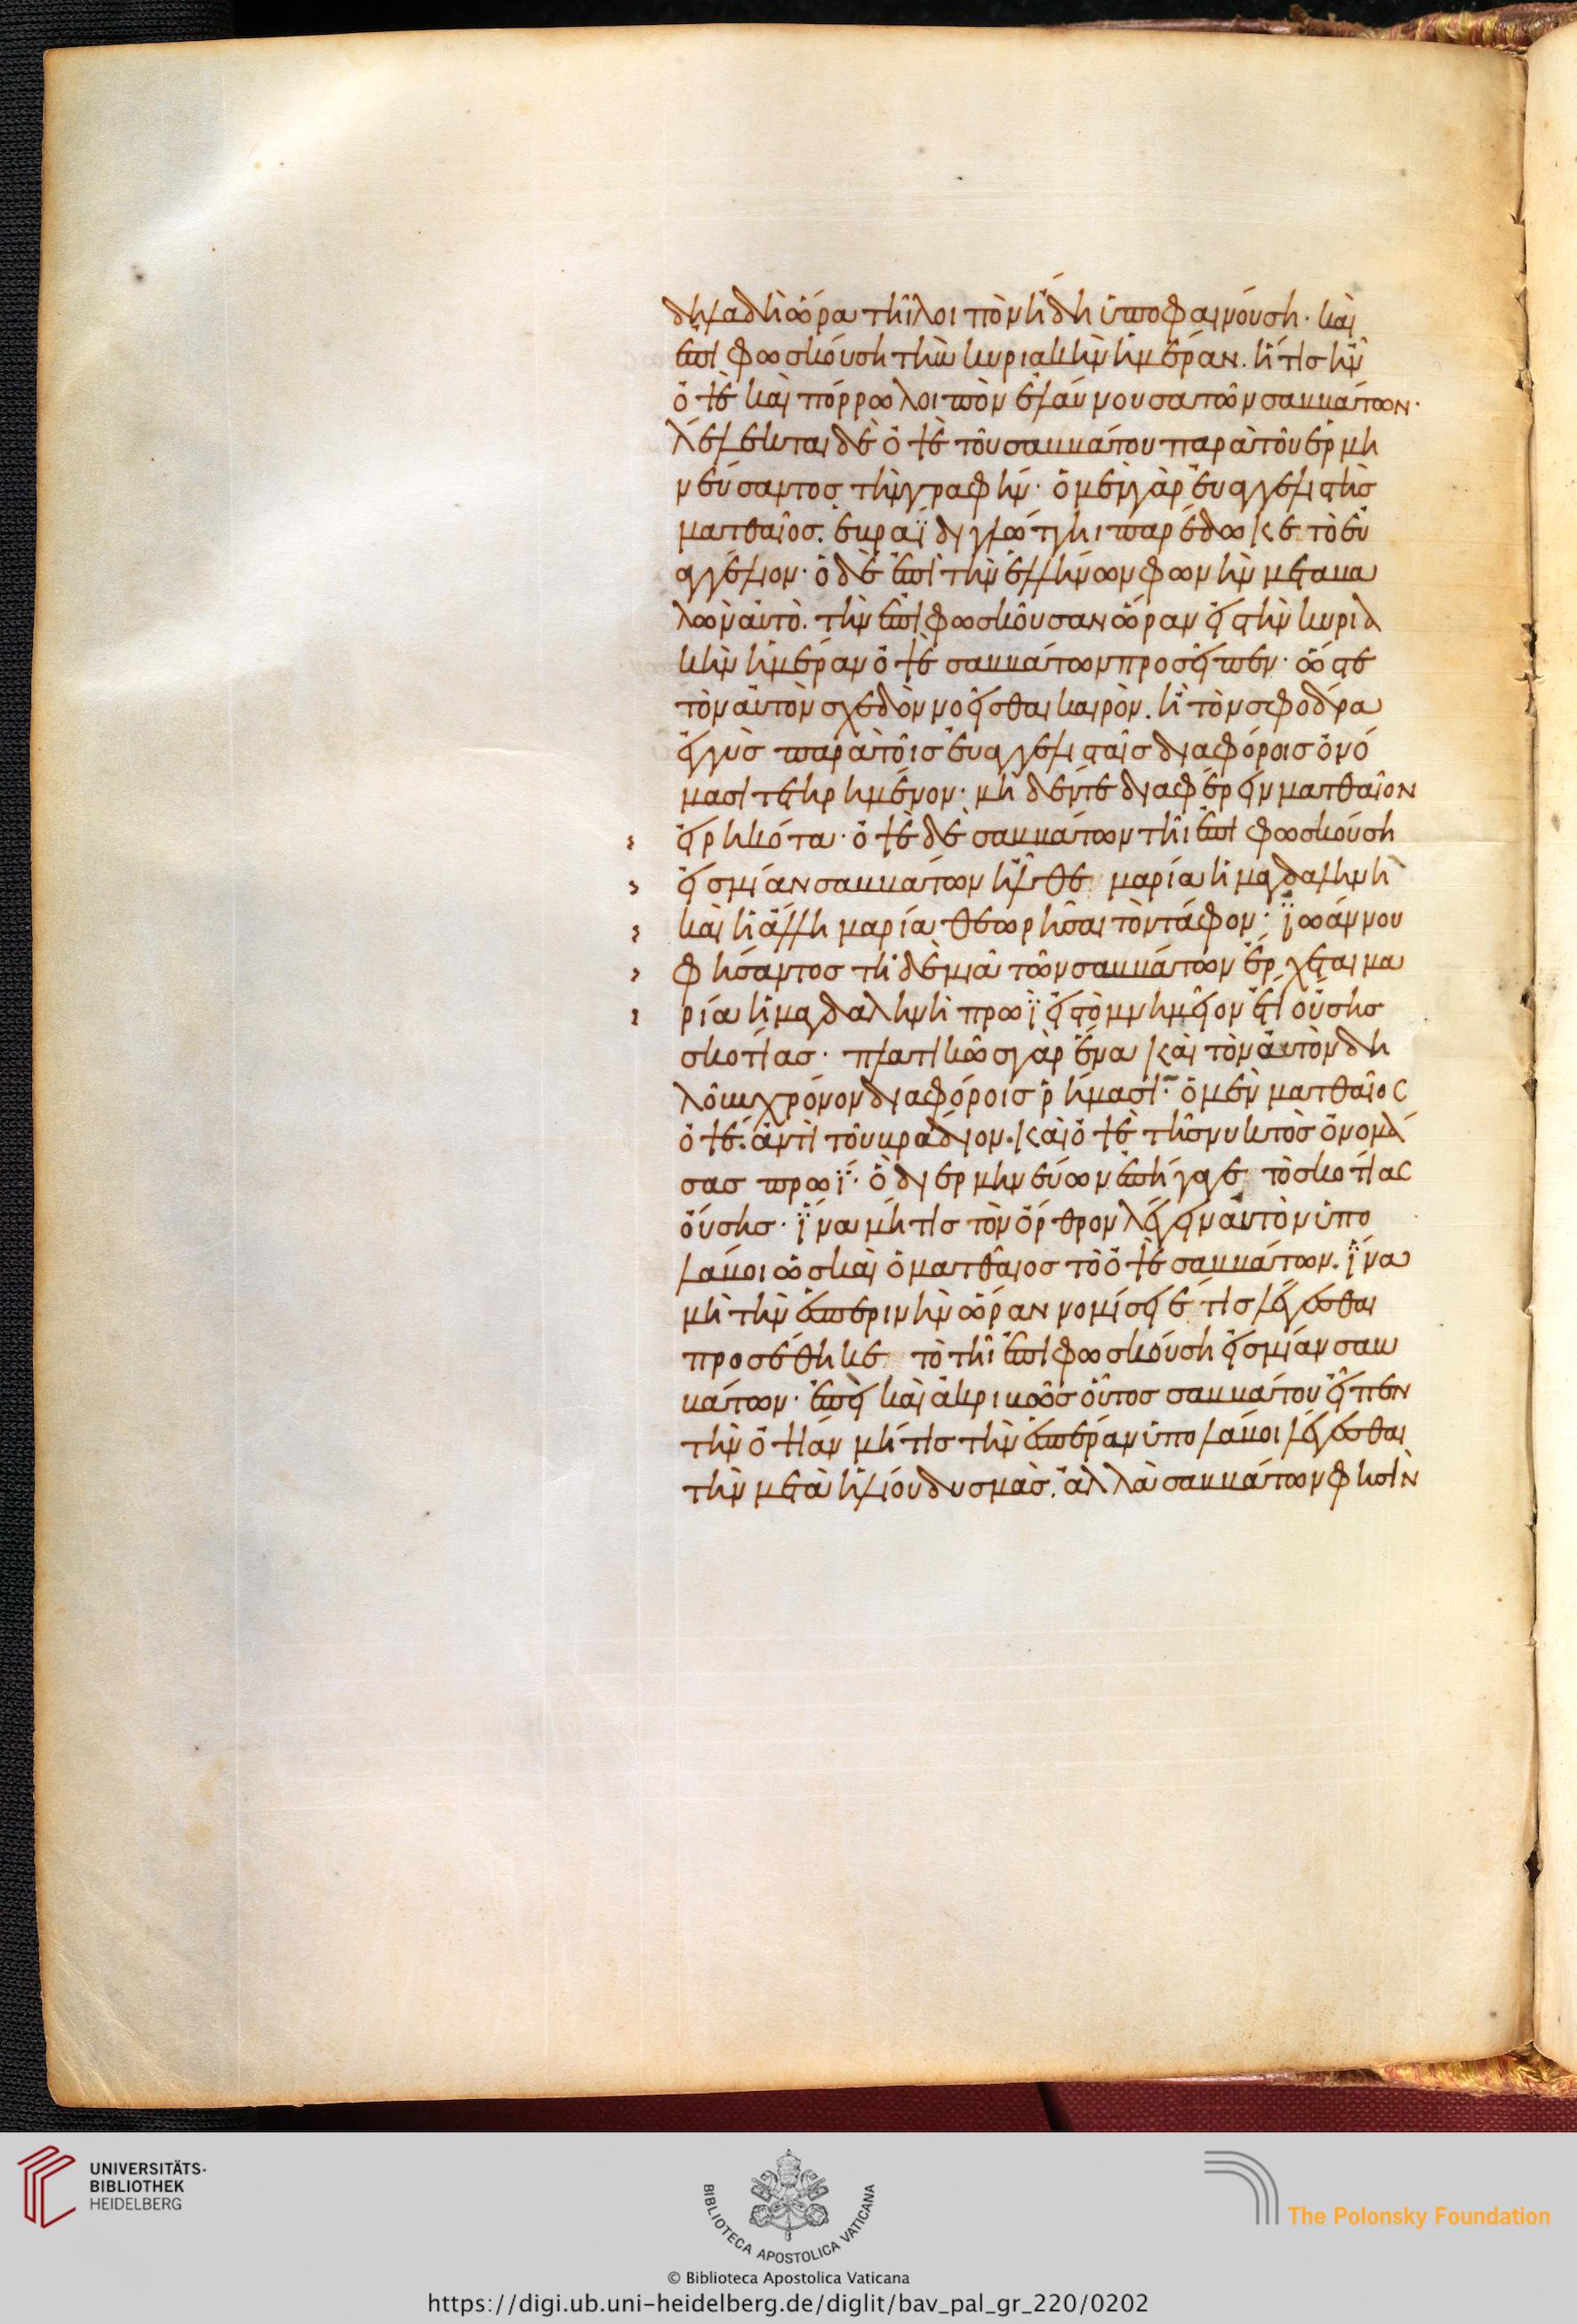 δηλαδὴ ὥρα τῆι λοιπὸν ἤδη ὑποφαινούση· καὶ
ἐπιφωσκούση τὴν κυριακὴν ἡμέραν. ἥτις ἦν
ὀψὲ καὶ πόρρω λοιπὸν ἐλαύνουσα τῶν σαββάτων·
λέλεκται δὲ ὀψὲ τοῦ σαββάτου παρὰ τοῦ ἑρμη
νεύσαντος τὴν γραφήν· ὁ μὲν γὰρ εὐαγγελιστὴς
ματθαῖος. ἑβραΐδι γλώττηι παρέδωκε τὸ εὐ
αγγέλιον· ὁ δὲ ἐπὶ τὴν ἑλλήνων φωνὴν μεταβα
λὼν αὐτὸ. τὴν ἐπιφωσκοῦσαν ὥραν εἰς τὴν κυρια
κὴν ἡμέραν ὀψὲ σαββάτων προσεῖπεν· ὥστε
τὸν αὐτὸν σχεδὸν νοεῖσθαι καιρὸν. ἢ τὸν σφόδρα
ἐγγὺς παρὰ τοῖς εὐαγγελισταῖς διαφόροις ὀνό
μασι τετηρημένον· μηδέν τε διαφέρειν ματθαῖον
εἰρηκότα· ὀψὲ δὲ σαββάτων τῆι ἐπιφωσκούση
εἰς μίαν σαββάτων ἦλθε μαρία ἡ μαγδαληνὴ
καὶ ἡ ἄλλη μαρία θεωρῆσαι τὸν τάφον· ἰωάννου
φήσαντος τῆ δὲ μιᾶ τῶν σαββάτων ἔρχεται μα
ρία ἡ μαγδαληνὴ πρωῒ εἰς τὸ μνημεῖον ἔτι οὔσης
σκοτίας· πλατικῶς γὰρ ἕνα καὶ τὸν αὐτὸν δη
λοῦσι χρόνον διαφόροις ῥήμασι· ὁ μὲν ματθαῖος
ὀψὲ. ἀντὶ τοῦ βράδιον. καὶ ὀψὲ τῆς νυκτὸς ὀνομά
σας πρωΐ· ὃ διερμηνεύων ἐπήγαγε τὸ σκοτίας
οὔσης· ἵνα μή τις τὸν ὄρθρον λέγειν αὐτὸν ὑπο
λάβοι ὡς καὶ ὁ ματθαῖος τὸ ὀψὲ σαββάτων. ἵνα
μὴ τὴν ἑσπερινὴν ὥραν νομίσειέ τις λέγεσθαι
προσέθηκε τὸ τῆι ἐπιφωσκούση εἰς μίαν σαβ
βάτων· ἐπεὶ καὶ ἀκριβῶς οὗτος σαββάτου εἶπεν
τὴν ὀψίαν μή τις τὴν ἑσπέραν ὑπολάβοι λέγεσθαι
τὴν μετὰ ἡλίου δυσμὰς. ἀλλὰ σαββάτων φησὶν
UNIVERSITÄTS-
BIBLIOTHEK
HEIDELBERG
BIBLIOTECA APOSTOLICA VATICANA
The Polonsky Foundation
© Biblioteca Apostolica Vaticana
https://digi.ub.uni-heidelberg.de/diglit/bav_pal_gr_220/0202